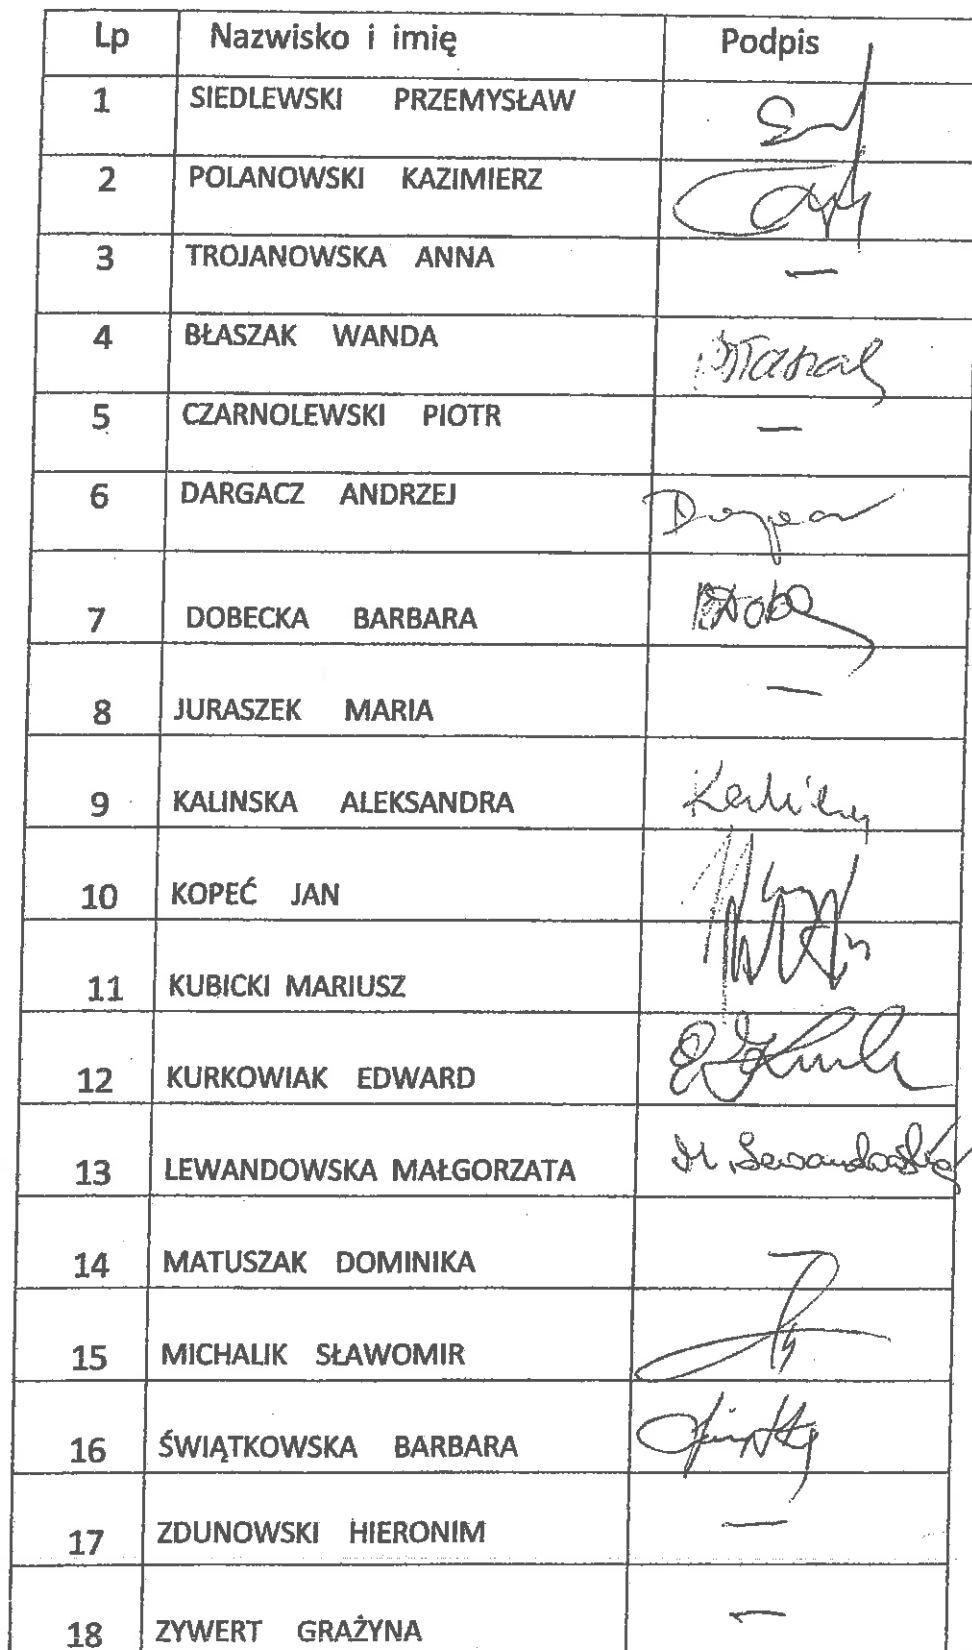 Lp Nazwisko i imię Podpis
1 SIEDLEWSKI PRZEMYSŁAW
2 POLANOWSKI KAZIMIERZ
3 TROJANOWSKA ANNA —
4 BŁASZAK WANDA
5 CZARNOLEWSKI PIOTR —
6 DARGACZ ANDRZEJ
7 DOBECKA BARBARA
8 JURASZEK MARIA —
9 KALINSKA ALEKSANDRA
10 KOPEĆ JAN
11 KUBICKI MARIUSZ
12 KURKOWIAK EDWARD
13 LEWANDOWSKA MAŁGORZATA M Lewandowska
14 MATUSZAK DOMINIKA
15 MICHALIK SŁAWOMIR
16 ŚWIĄTKOWSKA BARBARA
17 ZDUNOWSKI HIERONIM —
18 ZYWERT GRAŻYNA —